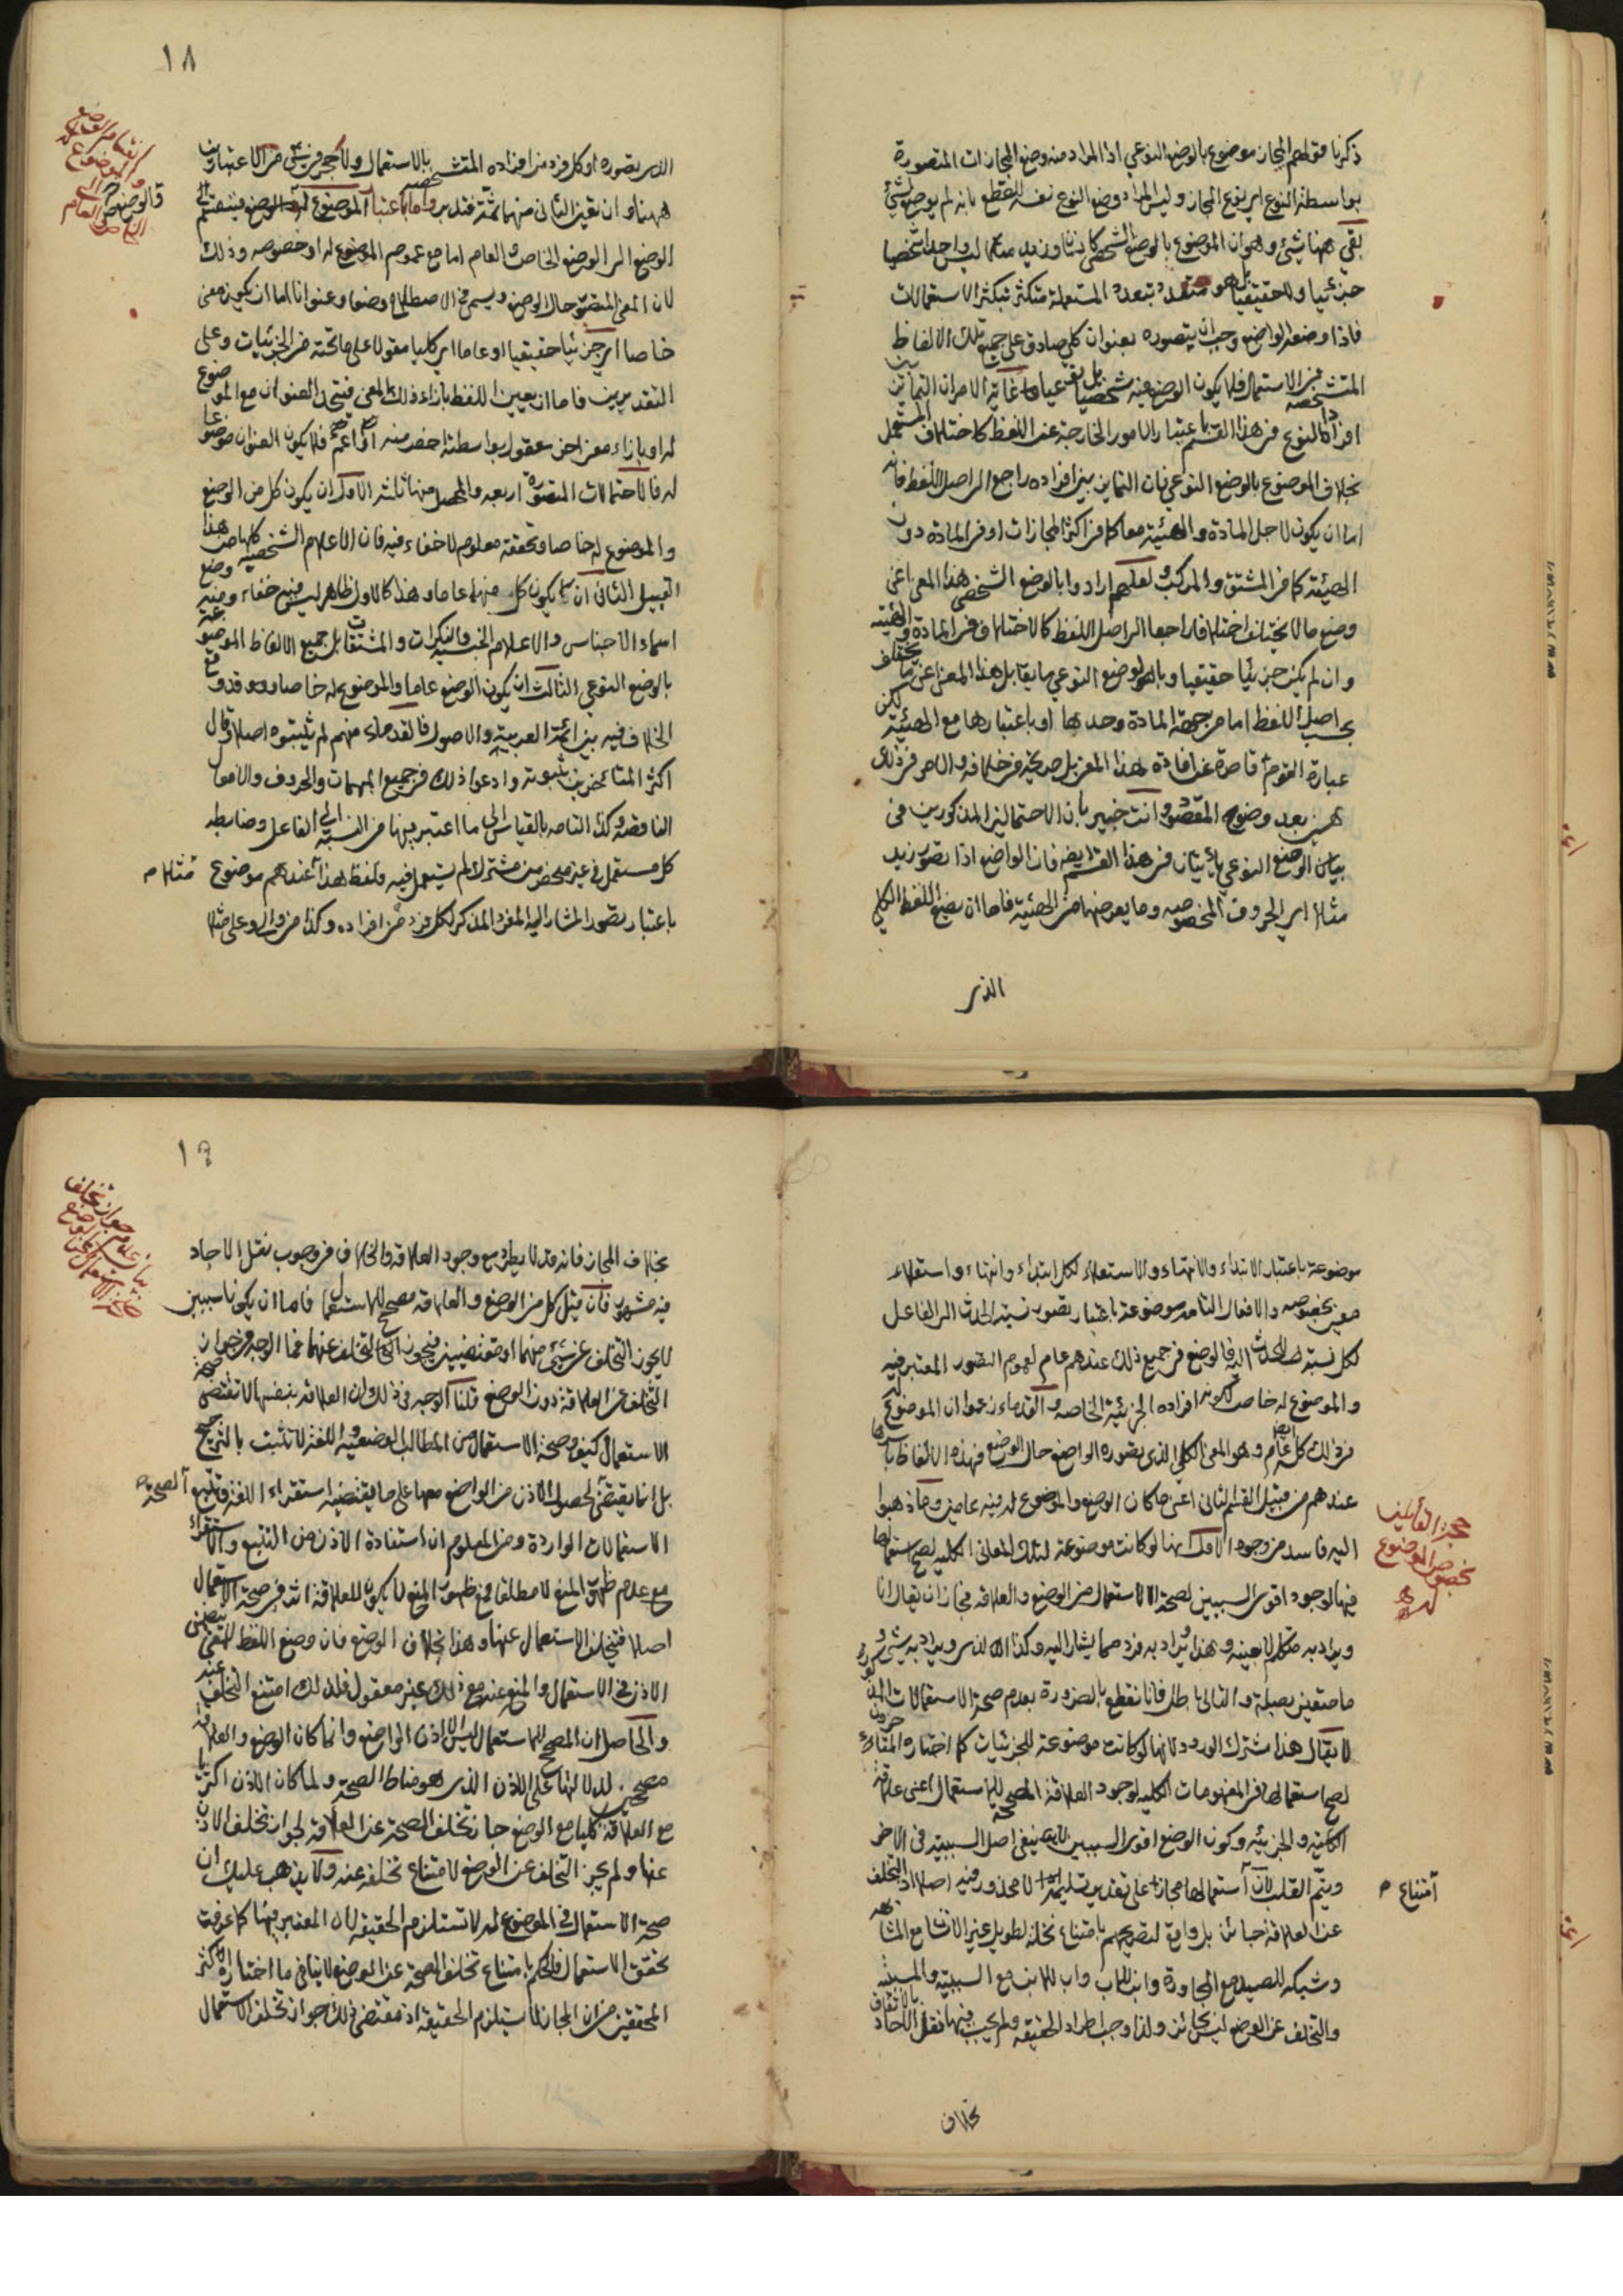 ذكرنا قولهم المجاز موضوع بالوضع النوعي اذ المراد منه وضع المجازات المتصورة
بواسطة النوع اي نوع المجاز وليس المراد وضع النوع نفسه للقطع بانه لم يوضع لشئ
بقي هنا شئ وهو ان الموضوع بالوضع الشخصي كانسان وزيد مثلا ليس واحدا شخصيا
جزئيا ولا حقيقيا بل هو متعدد بتعدد المستعملة متكثر بتكثر الاستعمالات
فاذا وضعه الواضع وجب ان يتصوره بعنوان كلي صادق على جميع تلك الالفاظ
المتشخصة من الاستعمال فلا يكون الوضع فيه شخصيا بل نوعيا غاية الامر ان التمايز بين
افراد النوع في هذا القسم باعتبار الامور الخارجة عن اللفظ كاختلاف المستعمل
بخلاف الموضوع بالوضع النوعي فان التمايز بين افراده راجع الى اصل اللفظ فانه
اما ان يكون لاجل المادة والهيئة معا كما في اكثر المجازات او في المادة دون
الهيئة كما في المشتق والمركب ولعلهم ارادوا بالوضع الشخصي هذا المعنى اعني
وضع ما لا يختلف اختلافا راجعا الى اصل اللفظ كالاختلاف في المادة والهيئة
وان لم يكن جزئيا حقيقيا وبالوضع النوعي ما يقابل هذا المعنى اعني ما يختلف
بحسب اصل اللفظ اما من جهة المادة وحدها او باعتبارها مع الهيئة لكن
عبارة القوم قاصرة عن افادة هذا المعنى بل صريحة في خلافه والامر في ذلك
هين بعد وضوح المقصود وانت خبير بان الاحتمالين المذكورين في
بيان الوضع النوعي يأتيان في هذا القسم ايضا فان الواضع اذا تصور زيد
مثلا اي الحروف المخصوصة وما يعرضها من الهيئة فاما ان يضع اللفظ الكلي
الذي
١٨
الذي تصوره او كل فرد من افراده المتشخصة بالاستعمال ولا حجر في شئ من الاعتبارين
ههنا وان تعين الثاني منهما ثمة فتدبر واما باعتبار الموضوع له الوضع فينقسم
الوضع الى الوضع الخاص والعام اما مع عموم الموضوع له او خصوصه وذلك
لان المعنى المتصور حال الوضع ويسمى في الاصطلاح وضعا وعنوانا اما ان يكون معنى
خاصا اي جزئيا حقيقيا او عاما اي كليا مقولا على ما تحته من الجزئيات وعلى
التقديرين فاما ان يعين اللفظ بازاء ذلك المعنى فيتحد العنوان مع الموضوع
له او بازاء معنى اخر معقول بواسطته اخص منه او اعم فلا يكون العنوان موضوعا
له فالاحتمالات المتصورة اربعة والمحصل منها ثلثة الاول ان يكون كل من الوضع
والموضوع له خاصا وتحققه معلوم لا خفاء فيه فان الاعلام الشخصية كلها من هذا
القبيل الثاني ان يكون كل منهما عاما وهذا كالاول ظاهر ليس فيه خفاء ومنه وضع
اسماء الاجناس والاعلام الجنسية والنكرات والمشتقات بل جميع الالفاظ الموضوعة
بالوضع النوعي الثالث ان يكون الوضع عاما والموضوع له خاصا وقد وقع
الخلاف فيه بين ائمة العربية والاصول فالقدماء منهم لم يثبتوه اصلا وقال
اكثر المتأخرين بثبوته وادعوا ذلك في جميع المبهمات والحروف والافعال
الناقصة وكذا التامة بالقياس الى ما اعتبر فيها من النسبة الى الفاعل وضابطه
كل مستعمل في غير محصور من مشترك لم يستعمل فيه فلفظ هذا عندهم موضوع مثلا
باعتبار تصور المشار اليه المفرد المذكر لكل فرد من افراده وكذا من والى وعلى مثلا
موضوعة باعتبار الابتداء والانتهاء والاستعلاء لكل ابتداء وانتهاء واستعلاء
معين بخصوصه والافعال التامة موضوعة باعتبار تصور نسبة الحدث الى الفاعل
لكل نسبة للحدث اليه فالوضع في جميع ذلك عندهم عام لعموم التصور المعتبر فيه
والموضوع له خاص لكونه افراده الجزئية الخاصة والقدماء زعموا ان الموضوع له
في ذلك كله عام ايضا وهو المعنى الكلي الذي تصوره الواضع حال الوضع فهذه الالفاظ باسرها
عندهم من قبيل القسم الثاني اعني ما كان الوضع والموضوع له فيه عامين وما ذهبوا
اليه فاسد من وجوه الاول انها لو كانت موضوعة لتلك المعاني الكلية لصح استعمالها
فيها لوجود اقوى السببين لصحة الاستعمال من الوضع والعلاقة فجاز ان يقال انا
ويراد به متكلم لا بعينه وهذا ويراد به فرد مما يشار اليه وكذا الذي ويراد به شئ
ما متعين بصلة والتالي باطل فانا نقطع بالضرورة بعدم صحة الاستعمالات المذكورة
لا يقال هذا مشترك الورود لانها لو كانت موضوعة للجزئيات كما اختاره المتأخرون
لصح استعمالها في المفهومات الكلية لوجود العلاقة المصححة للاستعمال اعني علاقة
الكلية والجزئية وكون الوضع اقوى السببين لا ينفي اصل السببية في الاخر
ويتم القلب لان استعمالها مجازا على تقدير تسليمه لا محذور فيه اصلا اذ التخلف
امتناع
عن العلاقة جائز بل واقع لتصريحهم بامتناع نخلة لطويل غير الانسان مع المشابهة
وشبكة للصيد مع المجاورة وابن للاب واب للابن مع السببية والمسببية
والتخلف عن الوضع ليس بجائز ولذا وجب اطراد الحقيقة ولم يجب فيها نقل الآحاد بالاتفاق
حجة القائلين
بخصوص الموضوع
له
بخلاف
١٩
بخلاف المجاز فانه قد لا يطرد مع وجود العلاقة والخلاف في وجوب نقل الآحاد
فيه مشهور فان قيل كل من الوضع والعلاقة مصحح للاستعمال فاما ان يكونا سببين
لا يجوز التخلف عن شئ منهما او مقتضيين فيجوز التخلف عنهما فما الوجه في جواز
التخلف عن العلاقة دون الوضع قلنا الوجه في ذلك ان العلاقة بنفسها لا تقتضي صحة
الاستعمال كيف وصحة الاستعمال من المطالب الوضعية واللغة لا تثبت بالترجيح
بل انما يقتضي لحصول الاذن من الواضع معها على ما يقتضيه استقراء اللغة وتتبع الصحة
الاستعمالات الواردة ومن المعلوم ان استفادة الاذن من التتبع والاستقراء
مع عدم ظهور المنع لا مطلقا فمع ظهور المنع لا يكون للعلاقة اثر في صحة الاستعمال
اصلا فيتخلف الاستعمال عنها وهذا بخلاف الوضع فان وضع اللفظ للمعنى يتضمن
الاذن في الاستعمال والمنع عنه مع ذلك غير معقول فلذلك امتنع التخلف عنه
والحاصل ان المصحح للاستعمال ليس الا اذن الواضع وانما كان الوضع والعلاقة
مصححين لدلالتهما على الاذن الذي هو مناط الصحة ولما كان الاذن اكثريا
مع العلاقة كليا مع الوضع جاز تخلف الصحة عن العلاقة لجواز تخلف الاذن
عنها ولم يجز التخلف عن الوضع لامتناع تخلفه عنه ولا يذهب عليك ان
صحة الاستعمال في الموضوع له لا تستلزم الحقيقة لان المعتبر فيها كما عرفت
تحقق الاستعمال فالحكم بامتناع تخلف الصحة عن الوضع لا ينافي ما اختاره اكثر
المحققين من ان المجاز لا يستلزم الحقيقة اذ مقتضى ذلك جواز تخلف الاستعمال